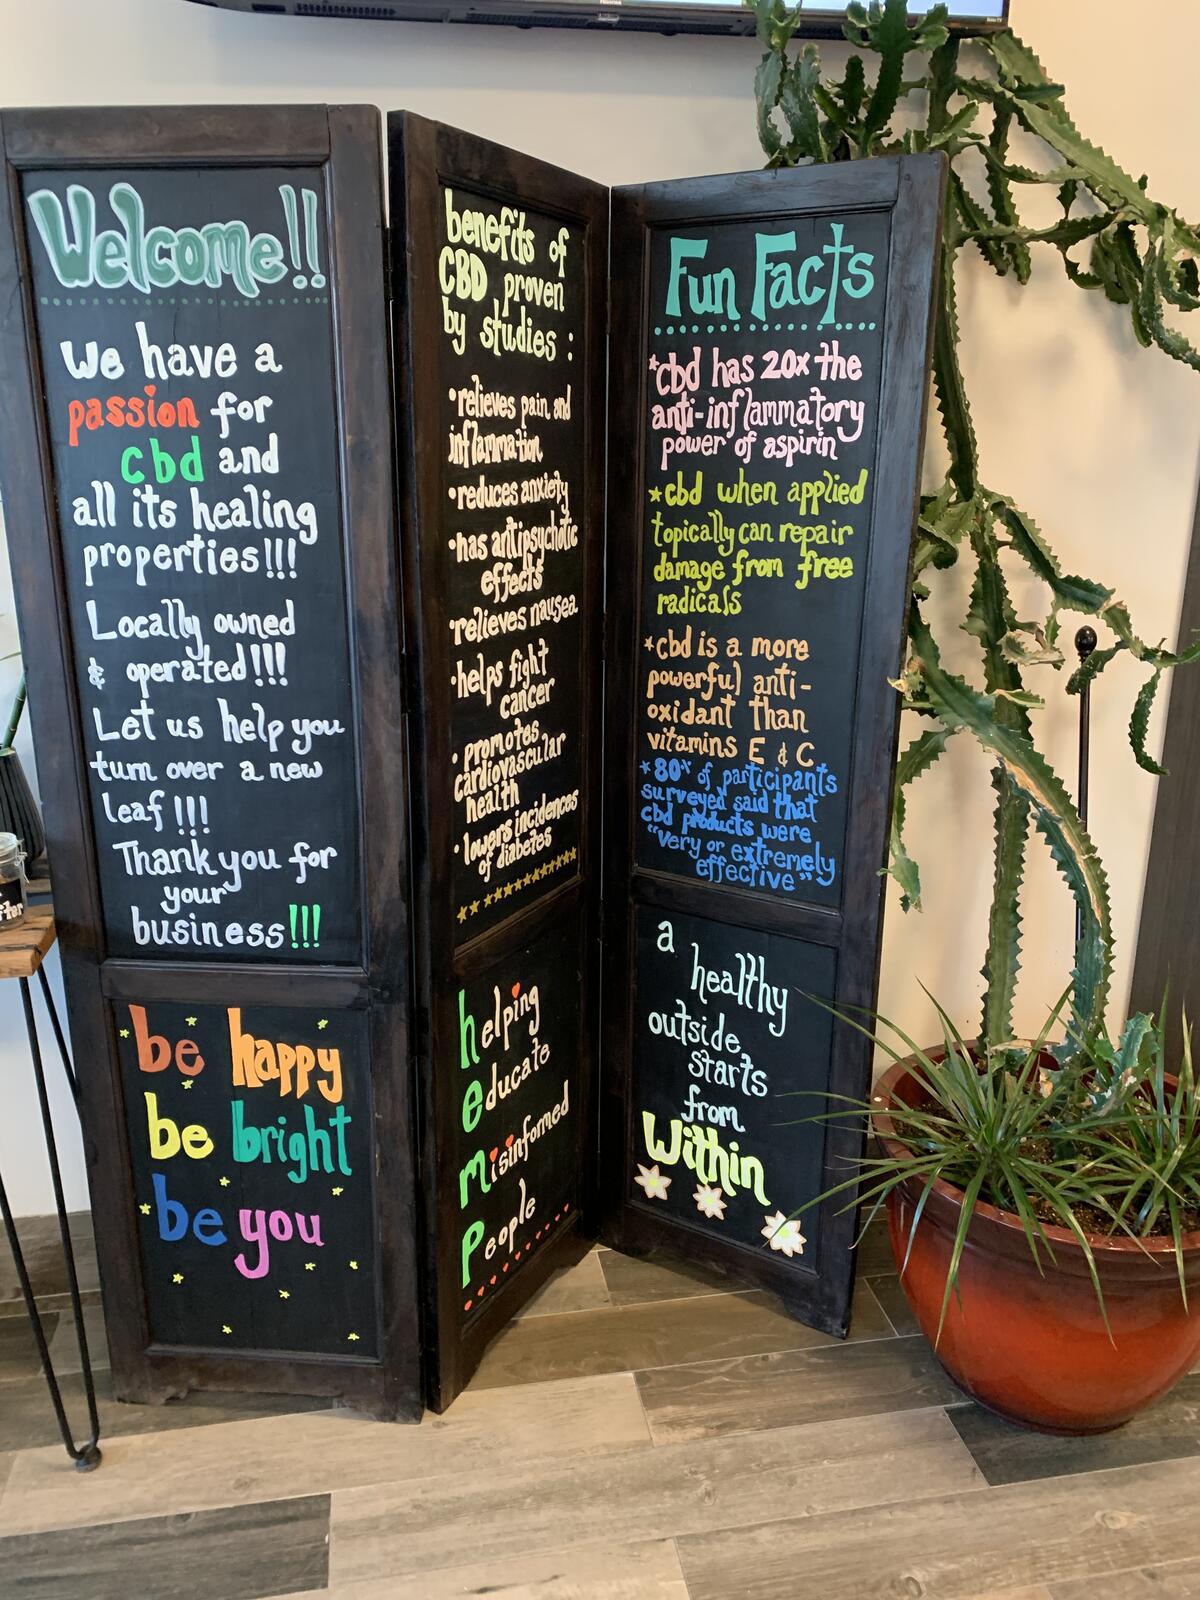 Welcome!!
We have a
passion for
cbd and
all its healing
properties!!!
Locally owned
& operated!!!
Let us help you
turn over a new
leaf!!!
Thank you for
your
business!!!
be happy
be bright
be you
benefits of
CBD proven
by studies:
•relieves pain and
inflammation
•reduces anxiety
•has antipsychotic
effects
•relieves nausea
•helps fight
cancer
•promotes
cardiovascular
health
•lowers incidences
of diabetes
helping
educate
misinformed
People
Fun Facts
*cbd has 20x the
anti-inflammatory
power of aspirin
*cbd when applied
topically can repair
damage from free
radicals
*cbd is a more
powerful anti-
oxidant than
vitamins E & C
*80% of participants
surveyed said that
cbd products were
"very or extremely
effective"
a
healthy
outside
starts
from
Within